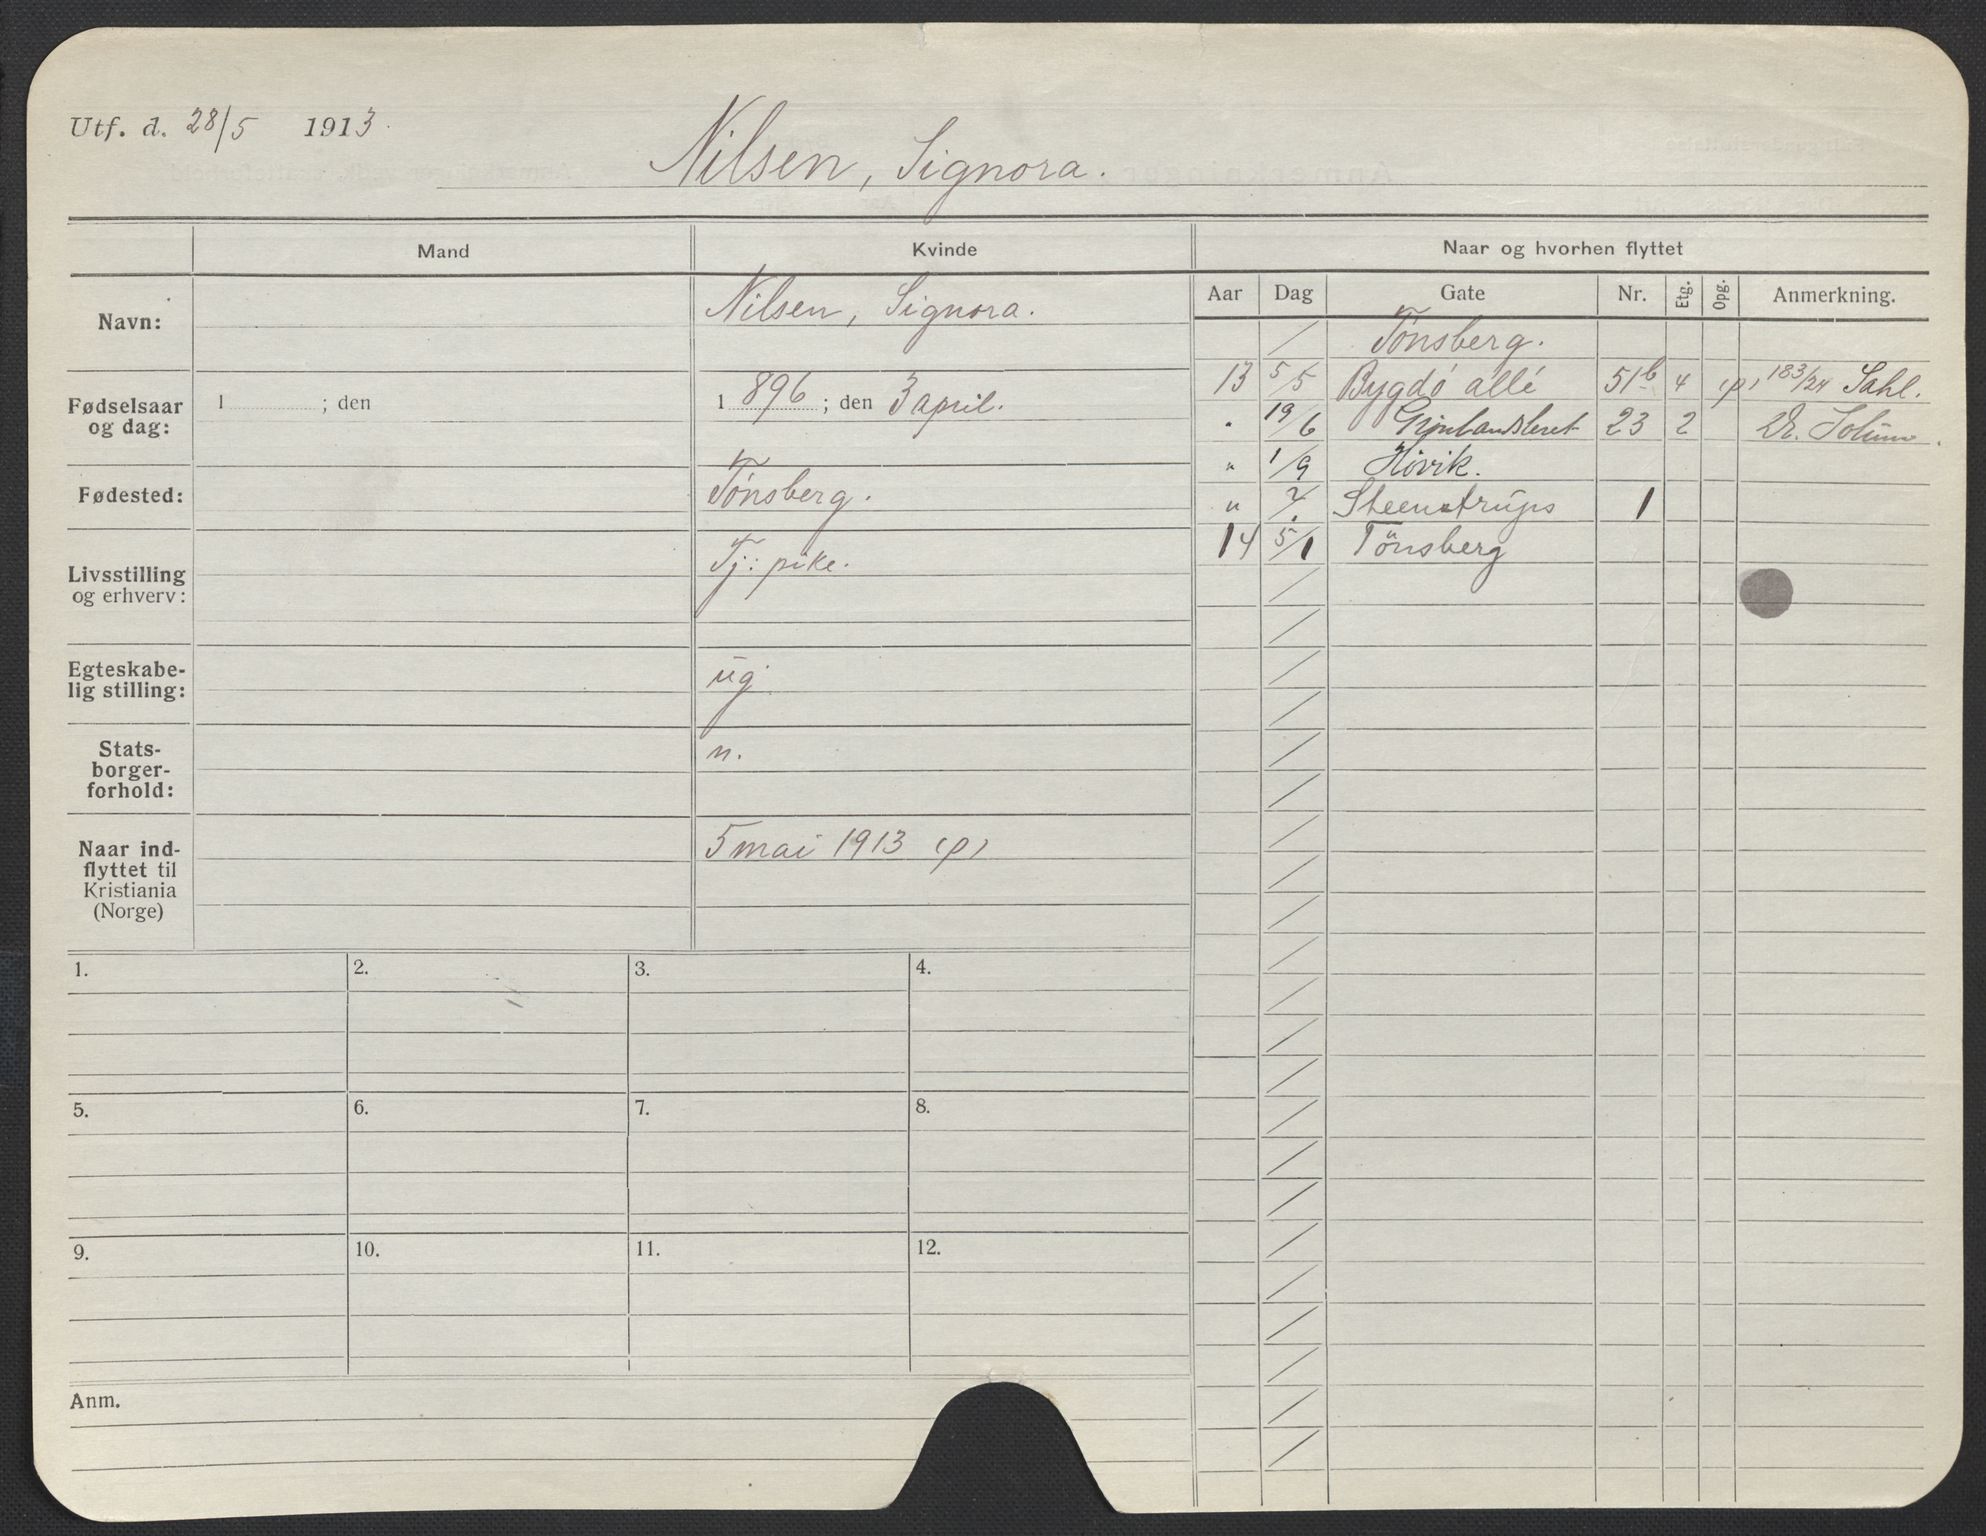 Utf. d. 28/5 1913.
Nilsen, Signora.
Mand
Kvinde
Navn:
Nilsen, Signora.
Fødselsaar og dag:
1 ; den
1 896 ; den 3 april.
Fødested:
Tönsberg.
Livsstilling og erhverv:
Tj: pike.
Egteskabe-
lig stilling:
ug.
Stats-
borger-
forhold:
n.
Naar ind-
flyttet til
Kristiania
(Norge)
5 mai 1913 (p)
1. 2. 3. 4.
5. 6. 7. 8.
9. 10. 11. 12.
Anm.
Naar og hvorhen flyttet
Aar Dag Gate Nr. Etg. Opg. Anmerkning.
/ Tönsberg.
13 5/5 Bygdö allé 51b 4 (p) 183/24 Sahl.
" 19/6 Grönlandsleret 23 2
" 1/9 Hövik.
" Steenstrups 1
14 5/1 Tönsberg